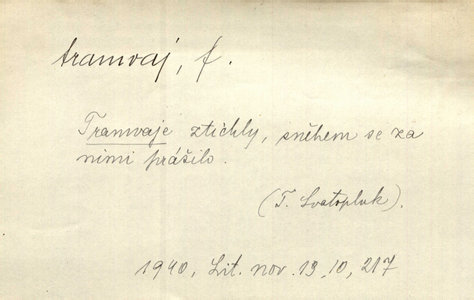 tramvaj, f.
Tramvaje ztichly, sněhem se za
nimi prášilo.
(T. Svatopluk).
1940, Lit. nov. 13, 10, 217